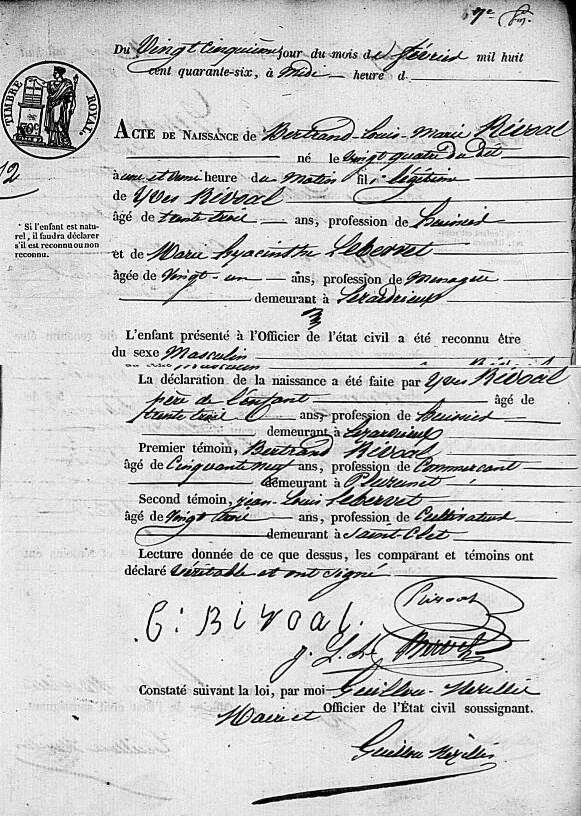 7e
Du Vingt cinquième jour du mois de février mil huit
cent quarante-six, à midi heure d
TIMBRE ROYAL.
12
ACTE DE NAISSANCE de Bertrand-Louis-Marie Rivoal
né le vingt quatre du dit
à une et demi heure du Matin fils légitime
de Yves Rivoal
âgé de trente trois ans, profession de huissier
* Si l'enfant est natu-
rel, il faudra déclarer
s'il est reconnu ou non
reconnu.
et de Marie hyacinthe Lebervet
âgée de Vingt-un ans, profession de Menagère
demeurant à Lezardrieux
L'enfant présenté à l'Officier de l'état civil a été reconnu être
du sexe Masculin
La déclaration de la naissance a été faite par Yves Rivoal
père de l'enfant âgé de
trente trois ans, profession de huissier
demeurant à Lezardrieux
Premier témoin, Bertrand Rivoal
âgé de Cinquante neuf ans, profession de Commerçant
demeurant à Plurunet
Second témoin, jean-Louis Lebervet
âgé de vingt trois ans, profession de Cultivateur
demeurant à Saint-Clet
Lecture donnée de ce que dessus, les comparant et témoins ont
déclaré véritable et ont signé
Rivoal
B: RIVOAL.
J. L. Le Bervet
Constaté suivant la loi, par moi Guillou-Kerillis
Maire et Officier de l'État civil soussignant.
Guillou Kerillis